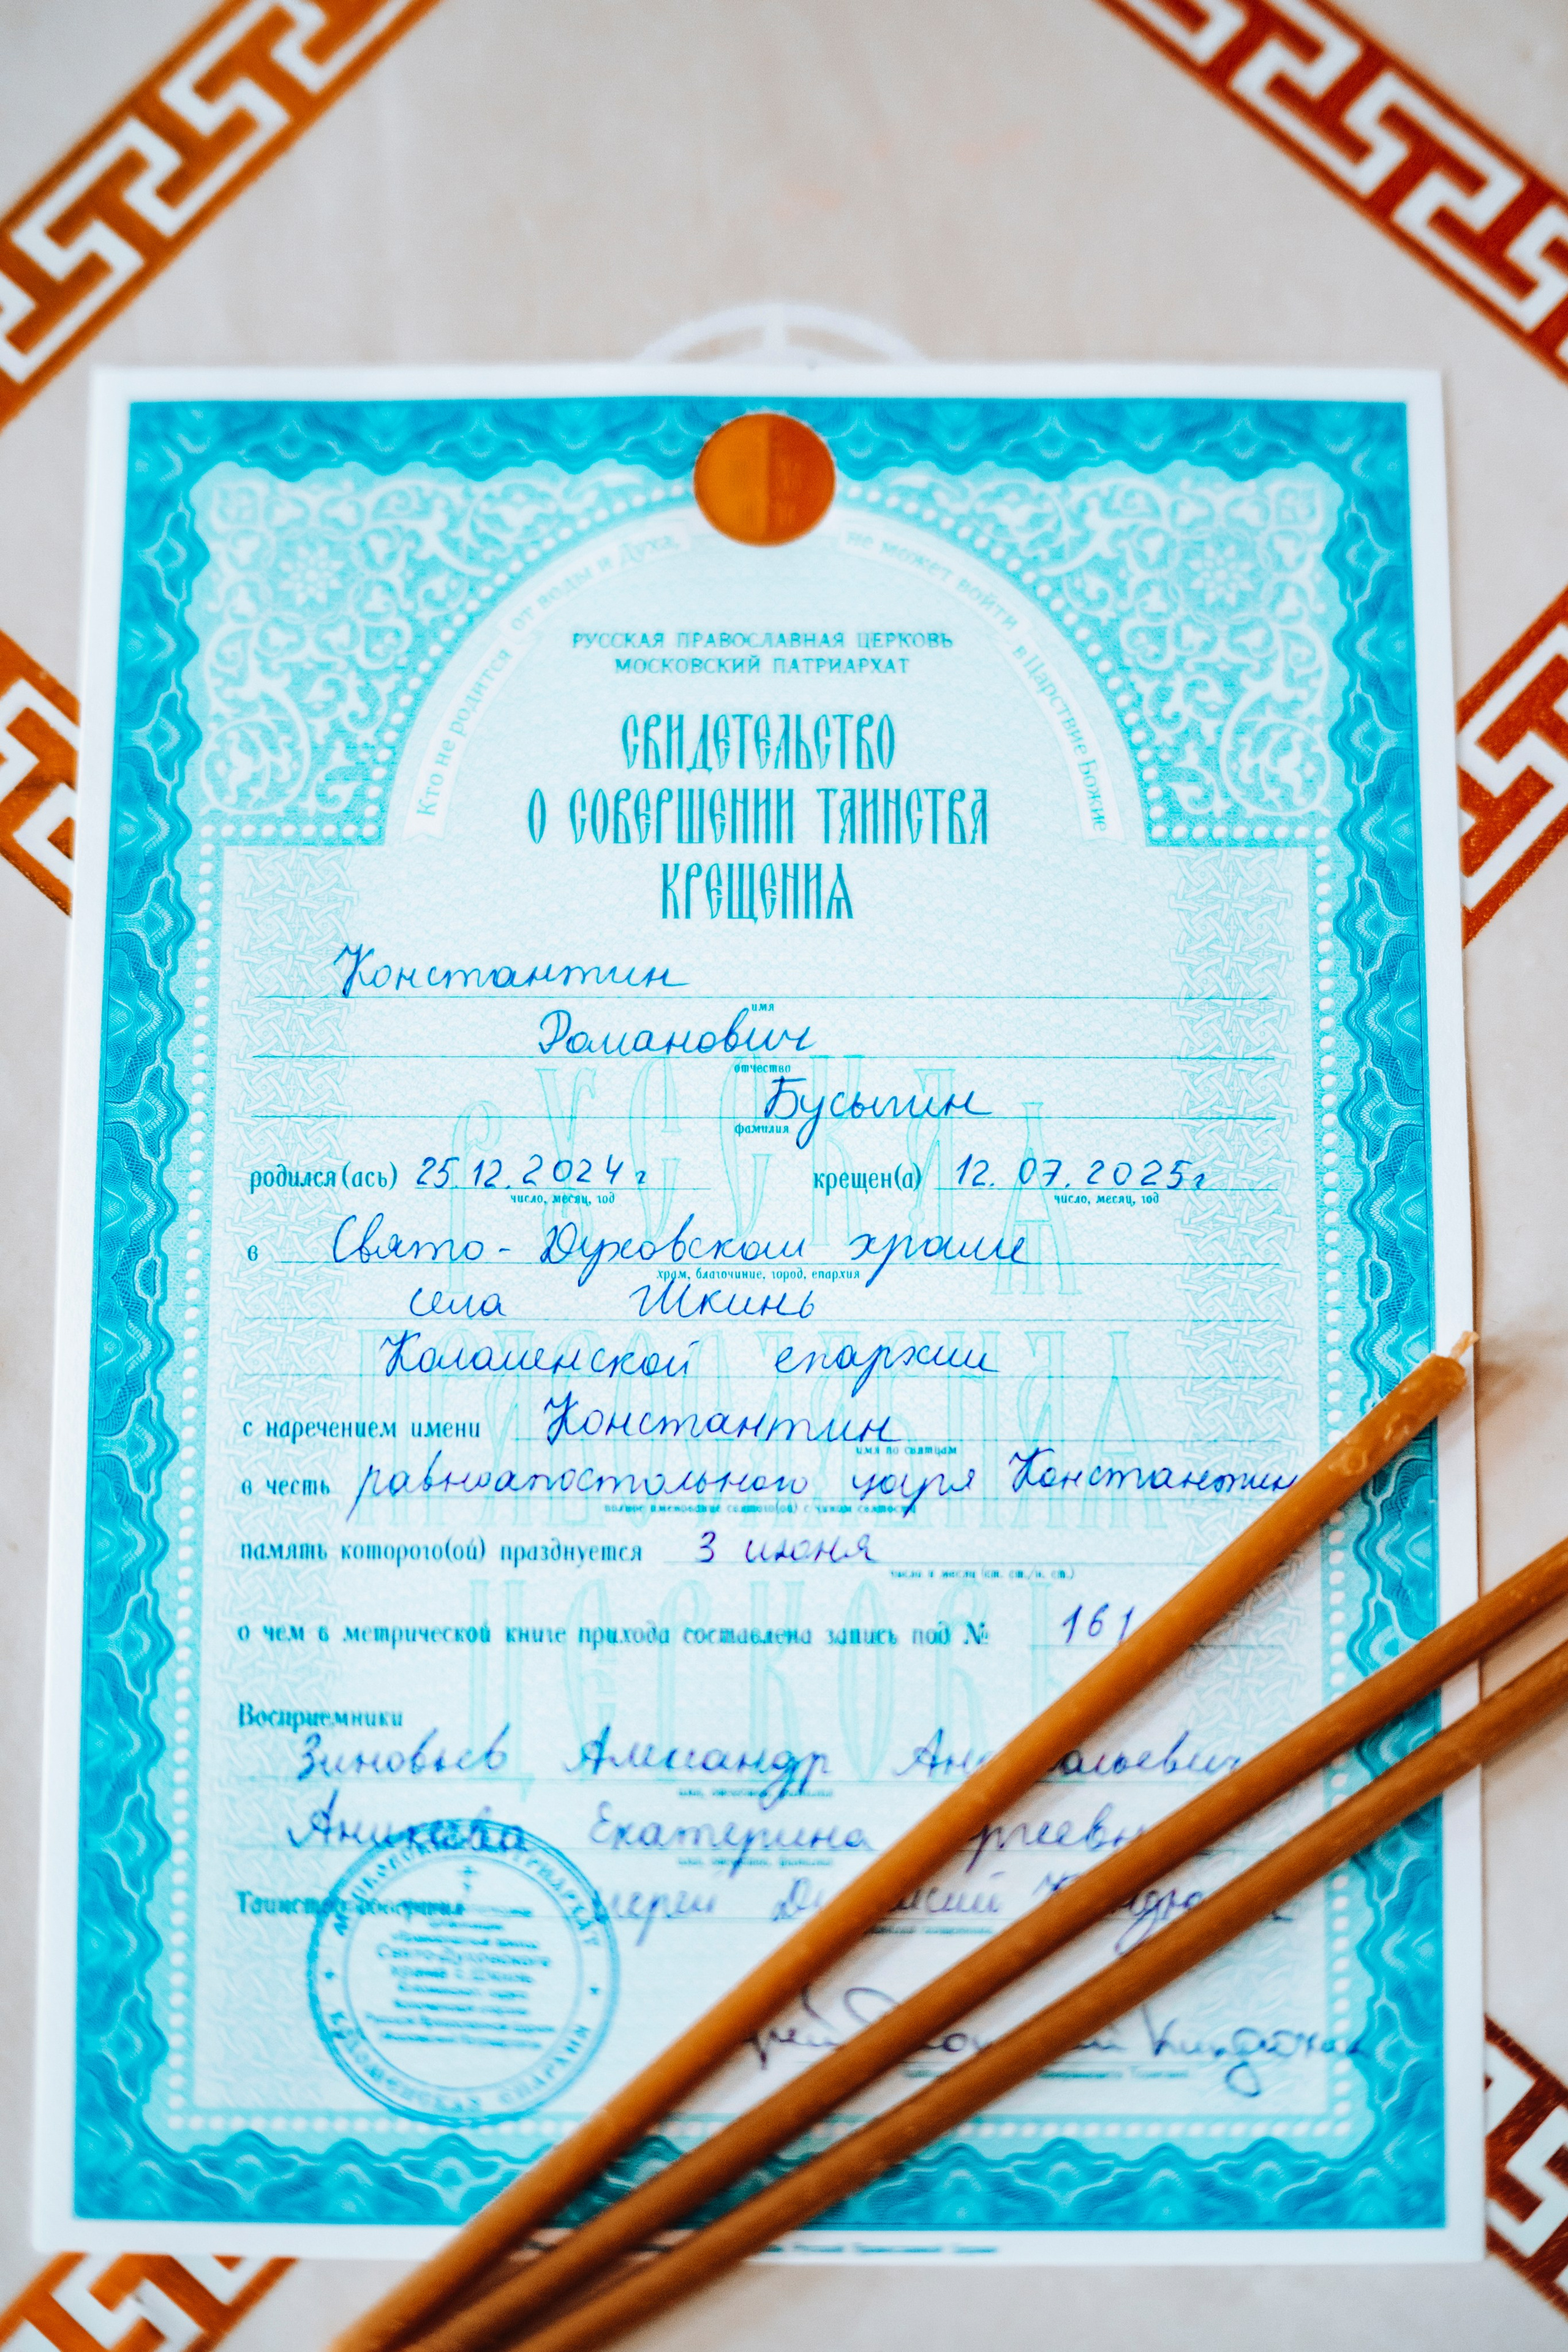 Кто не родится от воды и Духа, не может войти в Царствие Божие
РУССКАЯ ПРАВОСЛАВНАЯ ЦЕРКОВЬ
МОСКОВСКИЙ ПАТРИАРХАТ
СВИДЕТЕЛЬСТВО
О СОВЕРШЕНИИ ТАИНСТВА
КРЕЩЕНИЯ
Константин
имя
Романович
отчество
Бусыгин
фамилия
родился(ась) 25.12.2024 г крещен(а) 12.07.2025 г
число, месяц, год число, месяц, год
в Свято-Духовском храме
храм, благочиние, город, епархия
села Шкинь
Коломенской епархии
с наречением имени Константин
имя по святцам
в честь равноапостольного царя Константин
полное именование святого(ой) с чином святости
память которого(ой) празднуется 3 июня
число и месяц (ст. ст./н. ст.)
о чем в метрической книге прихода составлена запись под № 161
Восприемники
Зиновьев Александр
имя, отчество, фамилия
Екатерина
имя, отчество, фамилия
Таинство совершил
МОСКОВСКИЙ ПАТРИАРХАТ
Свято-Духовского
храма с. Шкинь
КОЛОМЕНСКАЯ ЕПАРХИЯ
РУССКАЯ
ПРАВОСЛАВНАЯ
ЦЕРКОВЬ